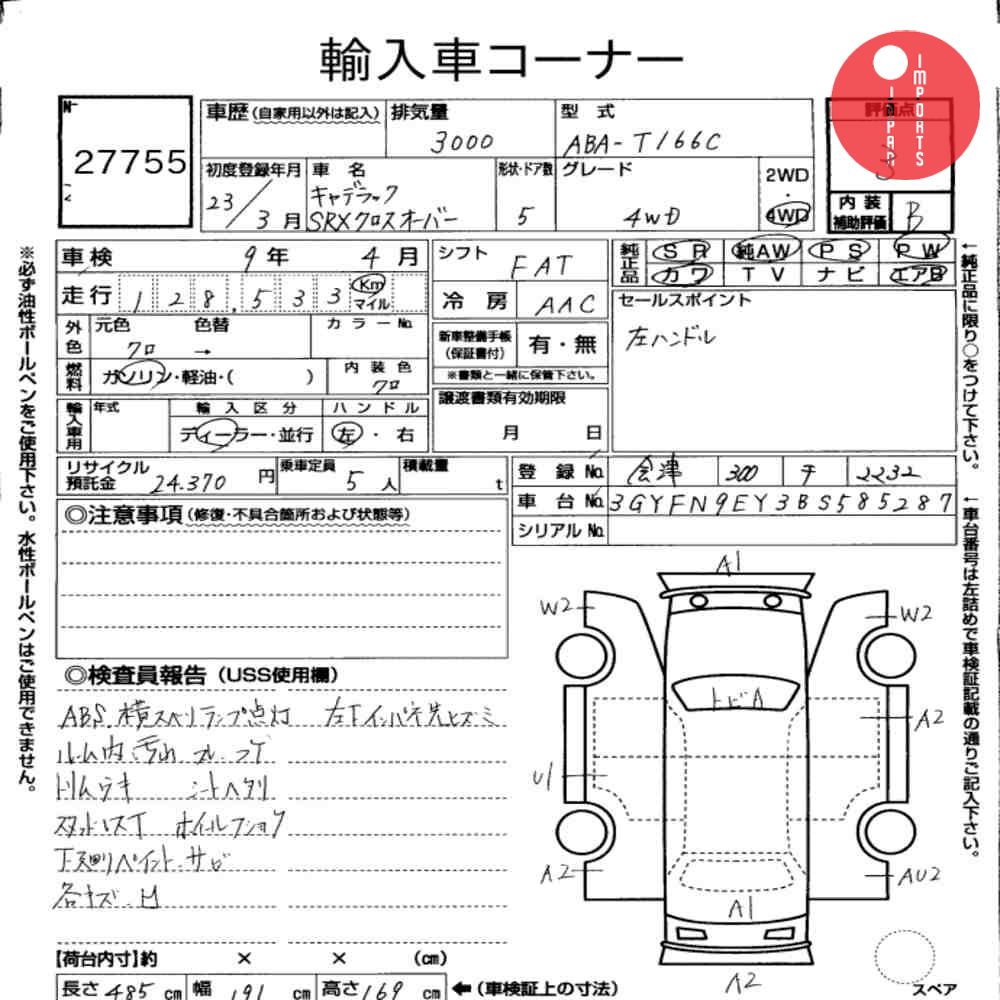 輸入車コーナー
IMPORTS
JAPAN
No
27755
車歴(自家用以外は記入)
排気量
3000
型 式
ABA-T166C
評価点
3
初度登録年月
23/3月
車 名
キャデラック
SRXクロスオーバー
形状・ドア数
5
グレード
4WD
2WD
・
4WD
内 装
補助評価
B
車検
9年 4月
シフト
FAT
純正品
SR 純AW PS PW
カワ TV ナビ エアB
走行
128,533
Km
マイル
冷 房
AAC
セールスポイント
左ハンドル
外色
元色
色替
クロ →
カラーNo.
新車整備手帳
(保証書付)
有・無
※書類と一緒に保管下さい。
燃料
ガソリン・軽油・( )
内装色
クロ
輸入車用
年式
輸入区分
ディーラー・並行
ハンドル
左・右
譲渡書類有効期限
月 日
リサイクル
預託金
24.370円
乗車定員
5人
積載量
t
登 録 No.
会津 300 チ 2232
車 台 No.
3GYFN9EY3BS585287
シリアル No.
◎注意事項(修復・不具合箇所および状態等)
◎検査員報告(USS使用欄)
ABS.横スベリランプ点灯 左Fインパネ先ヒズミ
ルーム内汚れ スレ コゲ
トリムウキ シートヘタリ
スタッドレスT ホイルフショク
下廻りペイント.サビ
各キズ.凹
A1
W2
W2
トビA
A2
U1
A2
AU2
A1
A2
スペア
【荷台内寸】約 × × (cm)
長さ485cm 幅191cm 高さ169cm ←(車検証上の寸法)
※必ず油性ボールペンをご使用下さい。水性ボールペンはご使用できません。
←純正品に限り○をつけて下さい。
←車台番号は左詰めで車検証記載の通りご記入下さい。